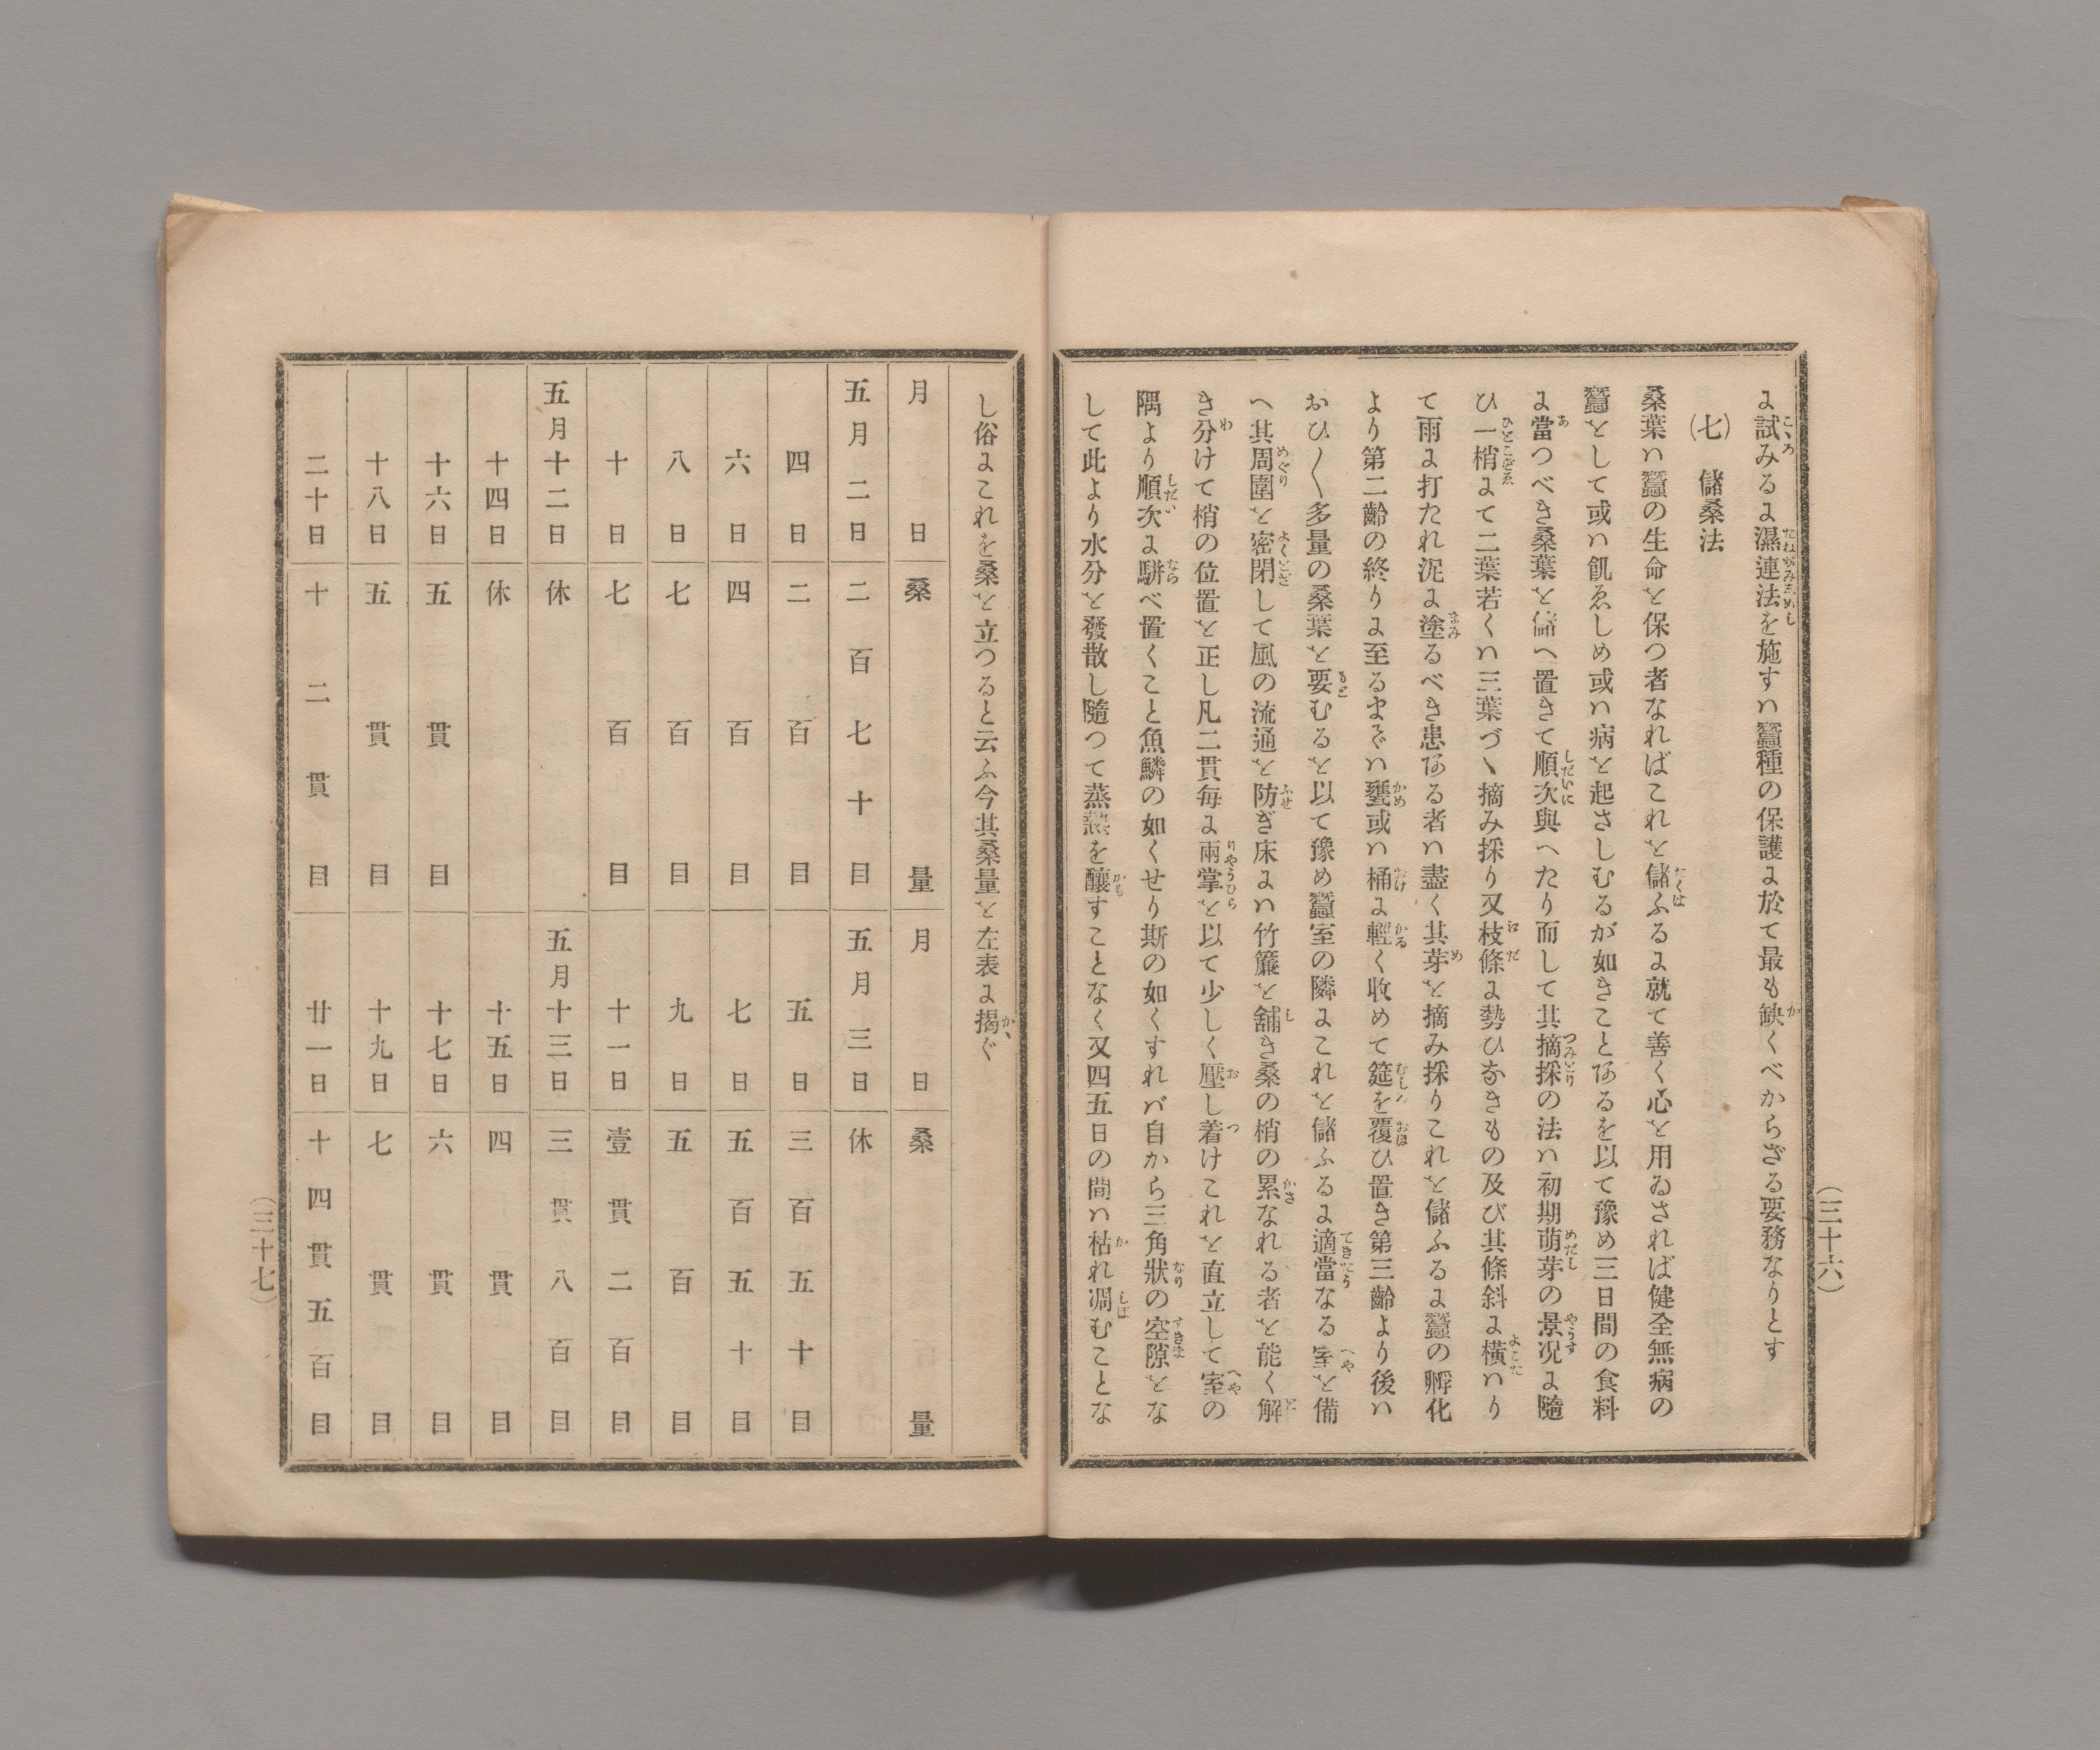 (三十六)
に試みるに濕連法を施すは蠶種の保護に於て最も缺くべからざる要務なりとす
(七) 儲桑法
桑葉は蠶の生命を保つ者なればこれを儲ふるに就て善く心を用ゐざれば健全無病の
蠶をして或は飢ゑしめ或は病を起さしむるが如きことあるを以て豫め三日間の食料
に當つべき桑葉を儲へ置きて順次與へたり而して其摘採の法は初期萌芽の景况に隨
ひ一梢にて二葉若くは三葉づゝ摘み採り又枝條に勢ひなきもの及び其條斜に横はり
て雨に打たれ泥に塗るべき患ある者は盡く其芽を摘み採りこれを儲ふるに蠶の孵化
より第二齡の終りに至るまでは甕或は桶に輕く收めて筵を覆ひ置き第三齡より後は
おひ〳〵多量の桑葉を要むるを以て豫め蠶室の隣にこれを儲ふるに適當なる室を備
へ其周圍を密閉して風の流通を防ぎ床には竹簾を舖き桑の梢の累なれる者を能く解
き分けて梢の位置を正し凡二貫毎に兩掌を以て少しく壓し着けこれを直立して室の
隅より順次に駢べ置くこと魚鱗の如くせり斯の如くすれバ自から三角狀の空隙をな
して此より水分を發散し隨つて蒸熱を釀すことなく又四五日の間は枯れ凋むことな
し俗にこれを桑を立つると云ふ今其桑量を左表に揭ぐ
月日 桑量 月日 桑量
五月二日 二百七十目 五月三日 休
四日 二百目 五日 三百五十目
六日 四百目 七日 五百五十目
八日 七百目 九日 五百目
十日 七百目 十一日 壹貫二百目
五月十二日 休 五月十三日 三貫八百目
十四日 休 十五日 四貫目
十六日 五貫目 十七日 六貫目
十八日 五貫目 十九日 七貫目
二十日 十二貫目 廿一日 十四貫五百目
(三十七)